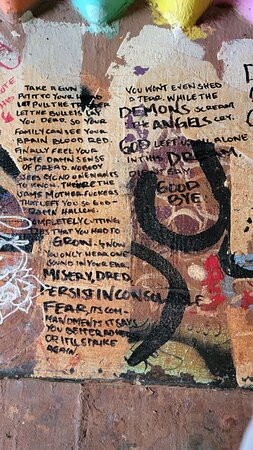 TAKE A GUN
PUT IT TO YOUR HEAD
LET PULL THE TRIGGER
LET THE BULLETS LAY
YOU DEAD. SO YOUR
FAMILY CAN SEE YOUR
BRAIN BLOOD RED.
FINALLY FEEL YOUR
SAME DAMN SENSE
OF DREAD. NOBODY
NO ONE WANTS
TO KNOW. THERE THE
SAME MOTHER FUCKERS
THAT LEFT YOU SO GOD-
DAMN HALLOW.
COMPLETELY CUTTING
TIES THAT YOU HAD TO
GROW. NOW
YOU ONLY HEAR ONE
SOUND IN YOUR EAR.
MISERY, DRED,
PERSIST INCONSOLABLE
FEAR, ITS COM-
MANDMENTS IT SAYS
YOU BETTER ADHERE
OR I'LL STRIKE
AGAIN.
YOU WONT EVEN SHED
A TEAR. WHILE THE
DEMONS SCREAM
THE ANGELS CRY.
GOD LEFT US ALL ALONE
IN THIS
DIDNT SAY
GOOD
BYE.